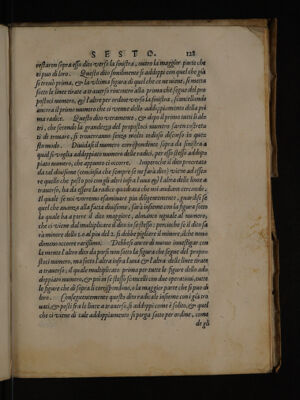 SESTO. 128
restaron sopra esso dito verso la sinistra, outro la maggior parte che
si puo di loro. Questo dito similmente si addoppi con quel che già
si trovò prima, & la ultima figura di quel che ne uiene, si metta
sotto le linee tirate a trauerso rincontro alla prima che segue del pro-
postoci numero, & l'altre per ordine uerso la sinistra, scancellando
ancora il primo numero che ci uenne dello addoppiamento della pri
ma radice. Questo dito ueramente, & dopo il primo tutti li al-
tri, che secondo la grandezza del propostoci numero saren constret
ti di trouare, si troueranno senza molto tedioso discorso in questo
modo. Diuidasi il numero corrispondente sopra da sinistra a
qual si uoglia addoppiato numero delle radici, per esso stesso addop
piato numero, che appunto ci occorre. Imperoche il dito procreato
da tal diuisione (conciosia che sempre se ne farà dito) uiene ad esse-
re quello che posto poi con gli altri infra l'una & l'altra delle linee a
trauerso, ha da essere la radice quadrata che noi andiam cercando.
Il quale se noi uorremo esaminare piu diligentemente, guardisi se
quel che auanza alla fatta diuisione, farà insieme con la figura sotto
la quale ha a partir il dito maggiore, almanco uguale al numero,
che ci uiene dal multiplicare il dito in se stesso: percioche se il dito fa
rà minore dello o. al piu del 2. si debbe pigliare il minore dito: neno
dimeno occorre rarissimi. Debbesi ancor di nuouo inuestigar con
la mente l'altro dito da porsi non sotto la figura che segue del propo-
stoci numero, ma sotto l'altra infra l'una & l'altra delle linee tirate
a trauerso, il quale multiplicato prima per tutte le figure dello ad-
doppiato numero, & poi in se stesso scancelli con due operationi, tutte
le figure che di sopra li corrispondino, o la maggior parte che si puo di
loro. Conseguentemente questo dito radicale insieme con i già tro
uati, & posti fra le linee a trauerso, si addoppi come è solito, & quel
che ci uiene di tale addoppiamento si ponga sotto per ordine, coma
de gli